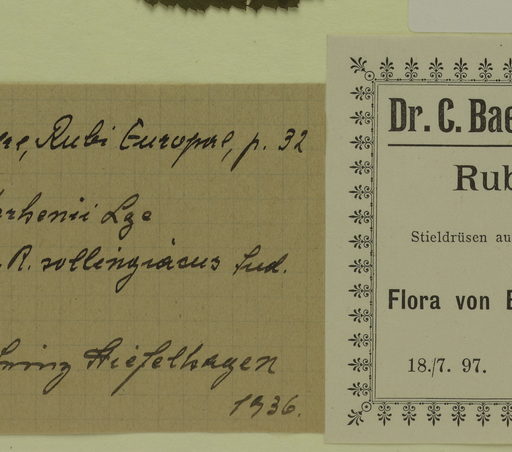 Rubi Europae, p. 32
Lge
R. sollingiacus Sud.
Hiefelhagen
1936.
Dr. C. Bae
Rub
Stieldrüsen au
Flora von
18./7. 97.